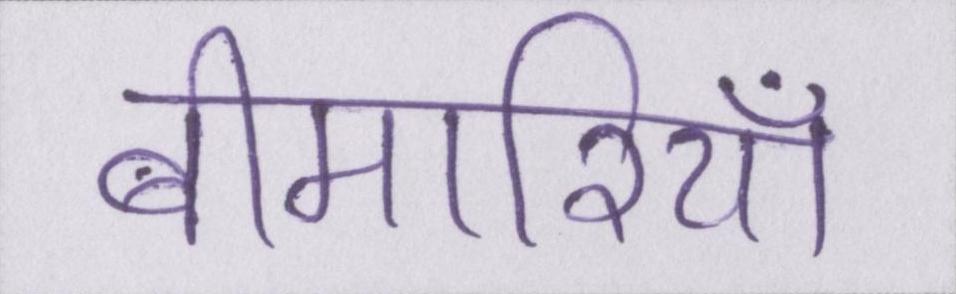 बीमारियाँ